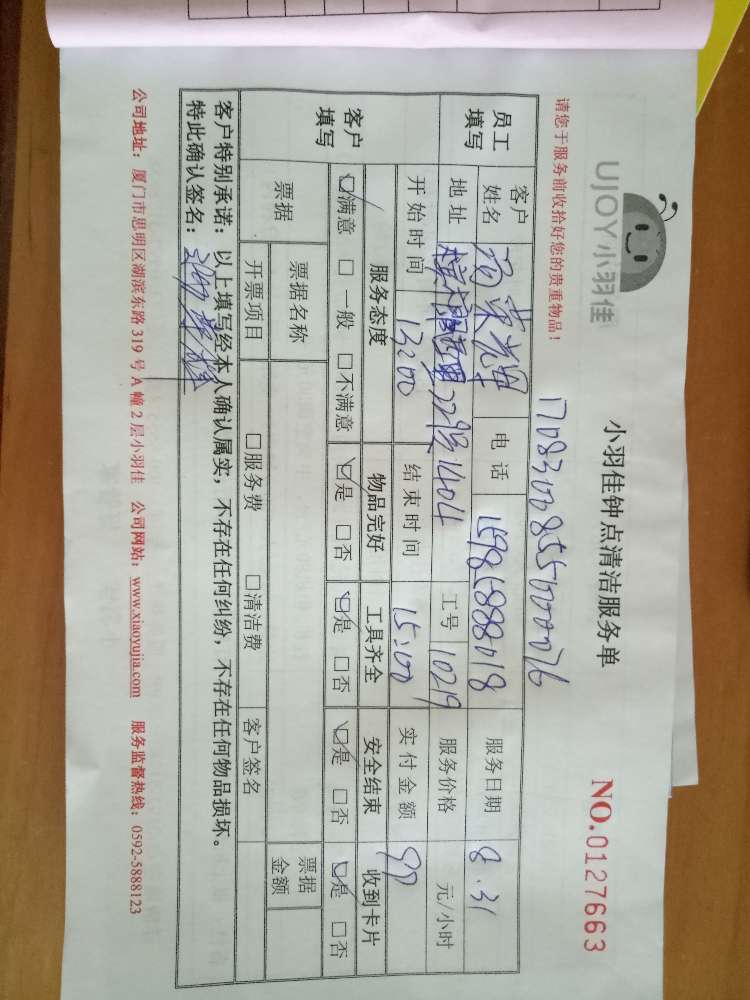 UJOY小羽佳
小羽佳钟点清洁服务单
NO.0127663
请您于服务前收拾好您的贵重物品！
170831008551000076
员工填写
客户姓名
电话 15985888018
服务日期 8.31
地址 22号1404
工号 10219
服务价格 元/小时
开始时间 13:00
结束时间 15:00
实付金额 90
客户填写
服务态度 物品完好 工具齐全 安全结束 收到卡片
☑满意 □一般 □不满意 ☑是 □否 ☑是 □否 ☑是 □否 ☑是 □否
票据
票据名称
票据金额
开票项目 □服务费 □清洁费 客户签名
客户特别承诺：以上填写经本人确认属实，不存在任何纠纷，不存在任何物品损坏。
特此确认签名：
公司地址：厦门市思明区湖滨东路319号A幢2层小羽佳 公司网站：www.xiaoyujia.com 服务监督热线：0592-5888123